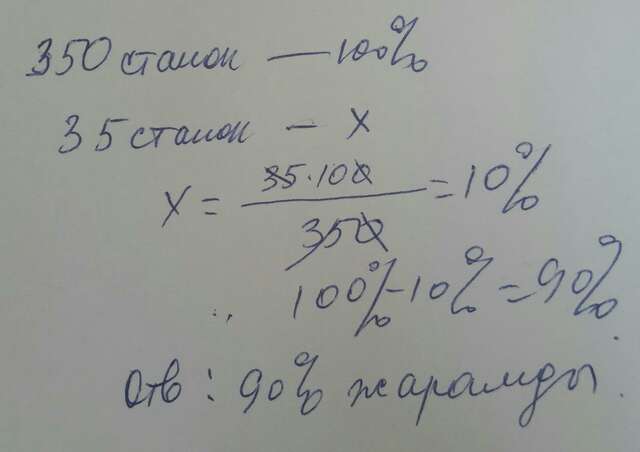 350 станок — 100%
35 станок — х
х = 35·100 / 350 = 10%
100% - 10% = 90%
Отв: 90% жарамды.